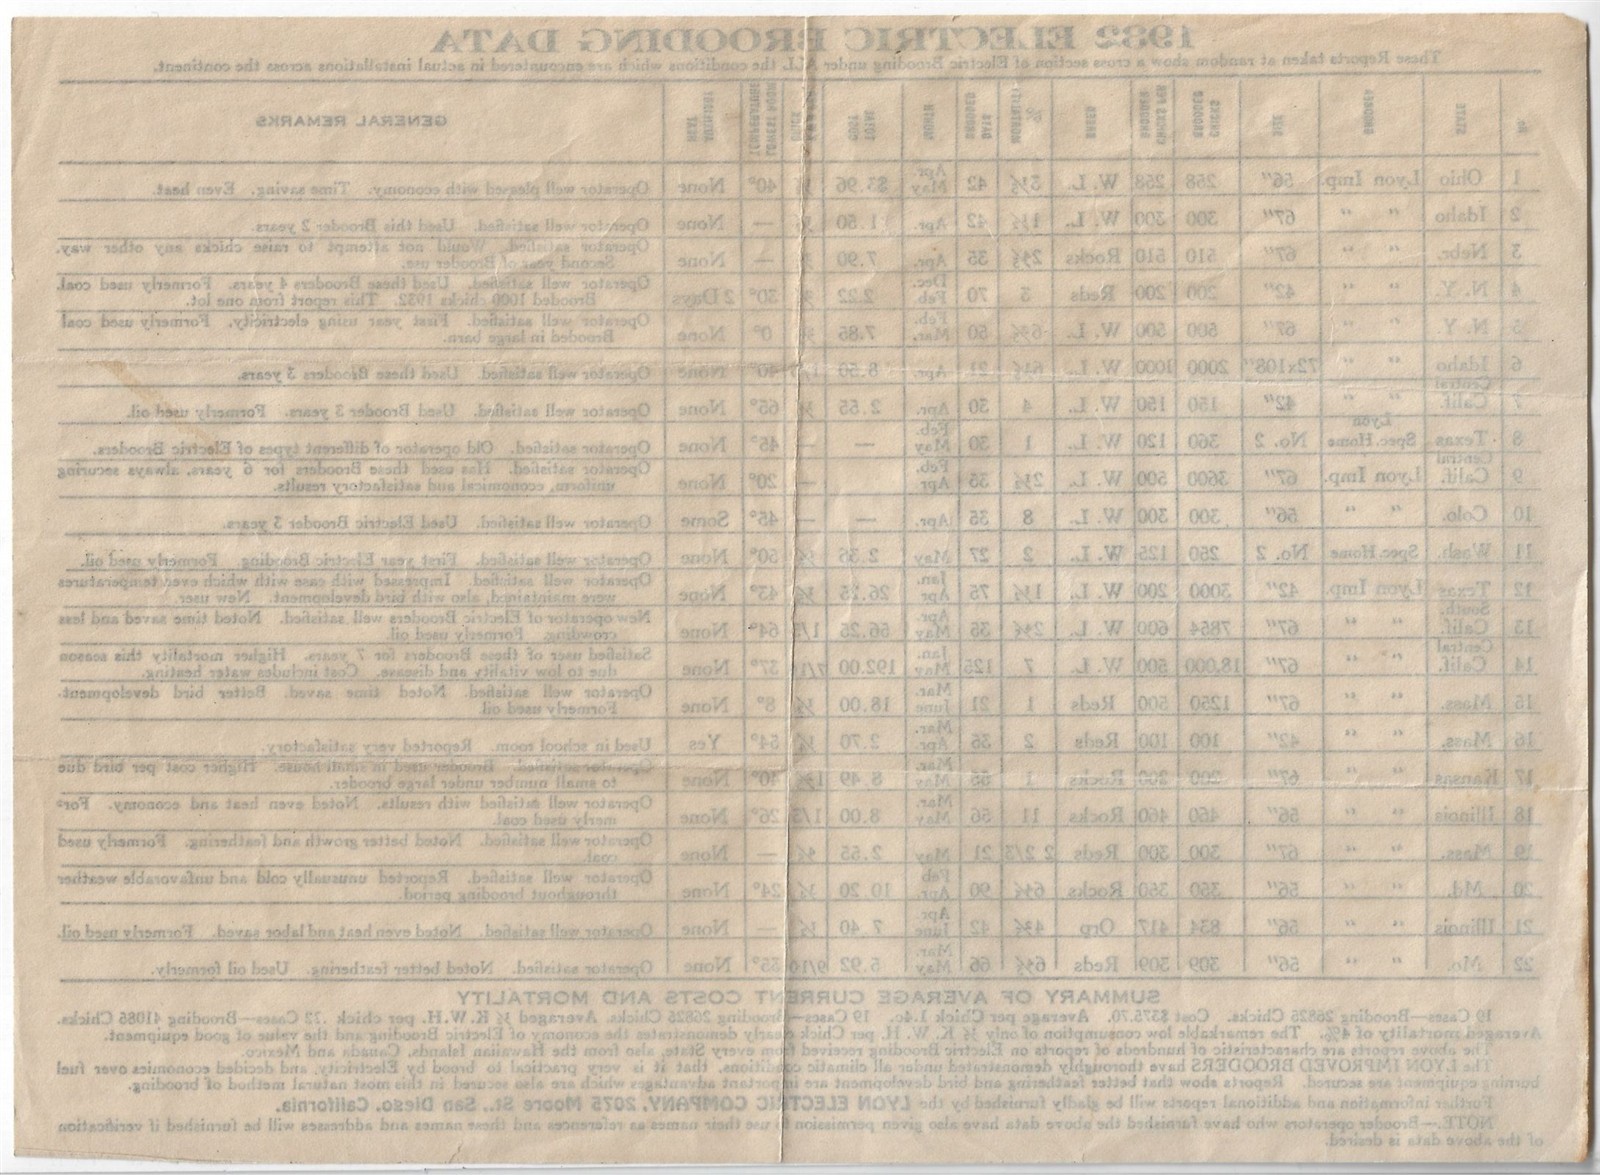 1932 ELECTRIC BROODING DATA
These Reports taken at random show a cross section of Electric Brooding under ALL the conditions which are encountered in actual installations across the continent.
No. STATE BROODER SIZE CHICKS BROODED CHICKS PER BROODER BREED % MORTALITY DAYS BROODED MONTH TOTAL COST CHICK LOWEST ROOM TEMPERATURE AUXILIARY HEAT GENERAL REMARKS
1 Ohio Lyon Imp. 56" 258 258 W. L. 3½ 42 Apr. May $3.96 40° None Operator well pleased with economy. Time saving. Even heat.
2 Idaho " " 67" 300 300 W. L. 1½ 42 Apr. 1.50 — None Operator well satisfied. Used this Brooder 2 years.
3 Nebr. " " 67" 510 510 Rocks 35 Apr. 7.90 — None Operator satisfied. Would not attempt to raise chicks any other way.
Second year of Brooder use.
4 N. Y. " " 42" 200 200 Reds 3 70 Dec. Feb. 2.22 30° 2 Days Operator well satisfied. Used these Brooders 4 years. Formerly used coal.
Brooded 1000 chicks 1932. This report from one lot.
5 N. Y. " " 67" 500 500 W. L. 50 Feb. Mar. 7.85 0° None Operator well satisfied. First year using electricity. Formerly used coal
Brooded in large barn.
6 Idaho " " 72x108" 2000 1000 W. L. 6½ 21 Apr. 8.50 40° None Operator well satisfied. Used these Brooders 3 years.
7 Central Calif. " " 42" 150 150 W. L. 4 30 Apr. 2.55 65° None Operator well satisfied. Used Brooder 3 years. Formerly used oil.
8 Texas Lyon Spec. Home No. 2 360 120 W. L. 1 30 Feb. May — — 45° None Operator satisfied. Old operator of different types of Electric Brooders.
9 Central Calif. Lyon Imp. 67" 3600 500 W. L. 2½ 35 Feb. Apr. — 20° None Operator satisfied. Has used these Brooders for 6 years, always securing
uniform, economical and satisfactory results.
10 Colo. " " 56" 300 300 W. L. 8 35 Apr. — — 45° Some Operator well satisfied. Used Electric Brooder 3 years.
11 Wash. Spec. Home No. 2 250 125 W. L. 2 27 May 2.38 50° None Operator well satisfied. First year Electric Brooding. Formerly used oil.
12 Texas Lyon Imp. 42" 3000 200 W. L. 1½ 75 Jan. Apr. 26.25 43° None Operator well satisfied. Impressed with ease with which even temperatures
were maintained, also with bird development. New user.
13 South. Calif. " " 67" 7854 600 W. L. 35 Apr. May 56.25 1/5 64° None New operator of Electric Brooders well satisfied. Noted time saved and less
crowding. Formerly used oil.
14 Central Calif. " " 67" 18,000 500 W. L. 7 125 Jan. May 192.00 7/10 37° None Satisfied user of these Brooders for 7 years. Higher mortality this season
due to low vitality and disease. Cost includes water heating.
15 Mass. " " 67" 1250 500 Reds 1 21 Mar. June 18.00 8° None Operator well satisfied. Noted time saved. Better bird development.
Formerly used oil
16 Mass. " " 42" 100 100 Reds 2 35 Mar. Apr. 2.70 54° Yes Used in school room. Reported very satisfactory.
17 Kansas " " 67" 200 200 Rocks 1 55 Mar. May 8.49 40° None Operator satisfied. Brooder used in small house. Higher cost per bird due
to small number under large brooder.
18 Illinois " " 56" 460 460 Rocks 11 56 Mar. May 8.00 1/5 26° None Operator well satisfied with results. Noted even heat and economy. For-
merly used coal.
19 Mass. " " 67" 300 300 Reds 2 2/3 21 May 2.55 — None Operator well satisfied. Noted better growth and feathering. Formerly used
coal.
20 Md. " " 56" 350 350 Rocks 90 Feb Apr. 10 20 24° None Operator well satisfied. Reported unusually cold and unfavorable weather
throughout brooding period.
21 Illinois " " 56" 834 417 Orp 42 Apr. June 7 40 — None Operator well satisfied. Noted even heat and labor saved. Formerly used oil.
22 Mo. " " 56" 309 309 Reds 66 Mar. May 5.92 9/10 35° None Operator satisfied. Noted better feathering. Used oil formerly.
SUMMARY OF AVERAGE CURRENT COSTS AND MORTALITY
19 Cases—Brooding 26825 Chicks. Cost $375.70. Average per Chick 1.4c. 19 Cases—Brooding 26825 Chicks. Averaged ½ K.W.H. per chick. 22 Cases—Brooding 41085 Chicks.
Averaged mortality of 4%. The remarkable low consumption of only ½ K. W. H. per Chick clearly demonstrates the economy of Electric Brooding and the value of good equipment.
The above reports are characteristic of hundreds of reports on Electric Brooding received from every State, also from the Hawaiian Islands, Canada and Mexico.
The LYON IMPROVED BROODERS have thoroughly demonstrated under all climatic conditions, that it is very practical to brood by Electricity, and decided economies over fuel
burning equipment are secured. Reports show that better feathering and bird development are important advantages which are also secured in this most natural method of brooding.
Further information and additional reports will be gladly furnished by the LYON ELECTRIC COMPANY, 2075 Moore St., San Diego, California.
NOTE.—Brooder operators who have furnished the above data have also given permission to use their names as references and these names and addresses will be furnished if verification
of the above data is desired.